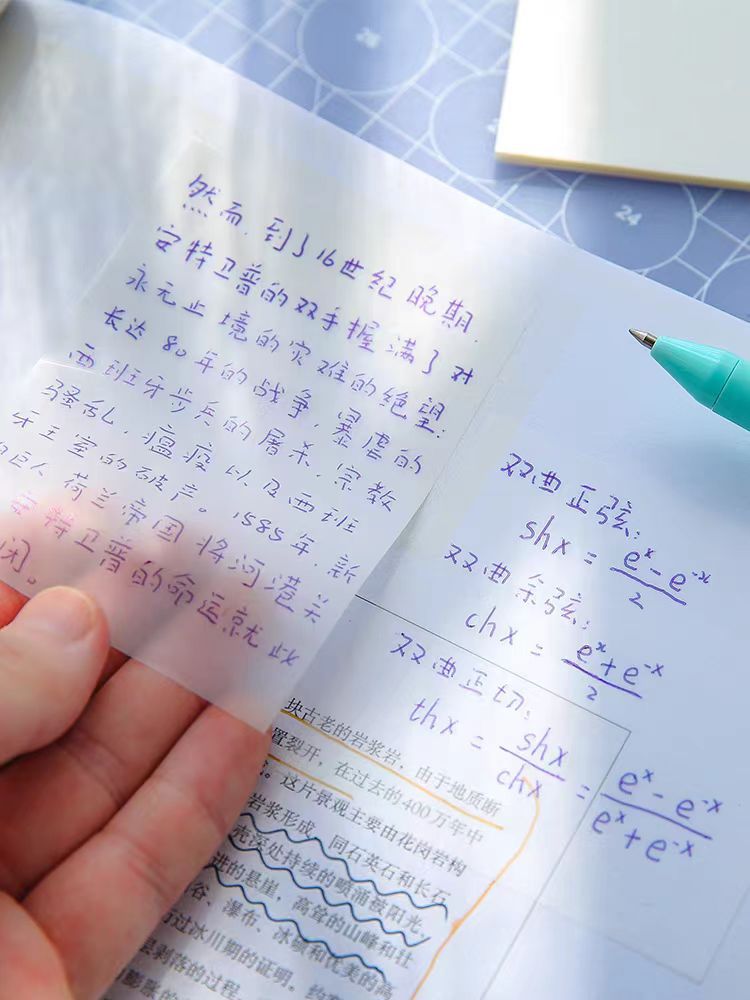 26
24
然而，到了16世纪晚期，
安特卫普的双手握满了对
永无止境的灾难的绝望：
长达80年的战争，暴虐的
西班牙步兵的屠杀，宗教
骚乱，瘟疫以及西班
牙王室的破产。1585年，新
巨人荷兰帝国将河港关
闭。安特卫普的命运就此
双曲正弦：
shx = (e^x - e^-x)/2
双曲余弦：
chx = (e^x + e^-x)/2
双曲正切：
thx = shx/chx = (e^x - e^-x)/(e^x + e^-x)
块古老的岩浆岩，由于地质断
置裂开，在过去的400万年中
。这片景观主要由花岗岩构
岩浆形成，同石英石和长石
荒漠处持续的喷涌被阳光，
进的悬崖，高耸的山峰和壮
谷、瀑布、冰碛和优美的高
过冰川期的证明。
层剥落的过程，
膨胀的